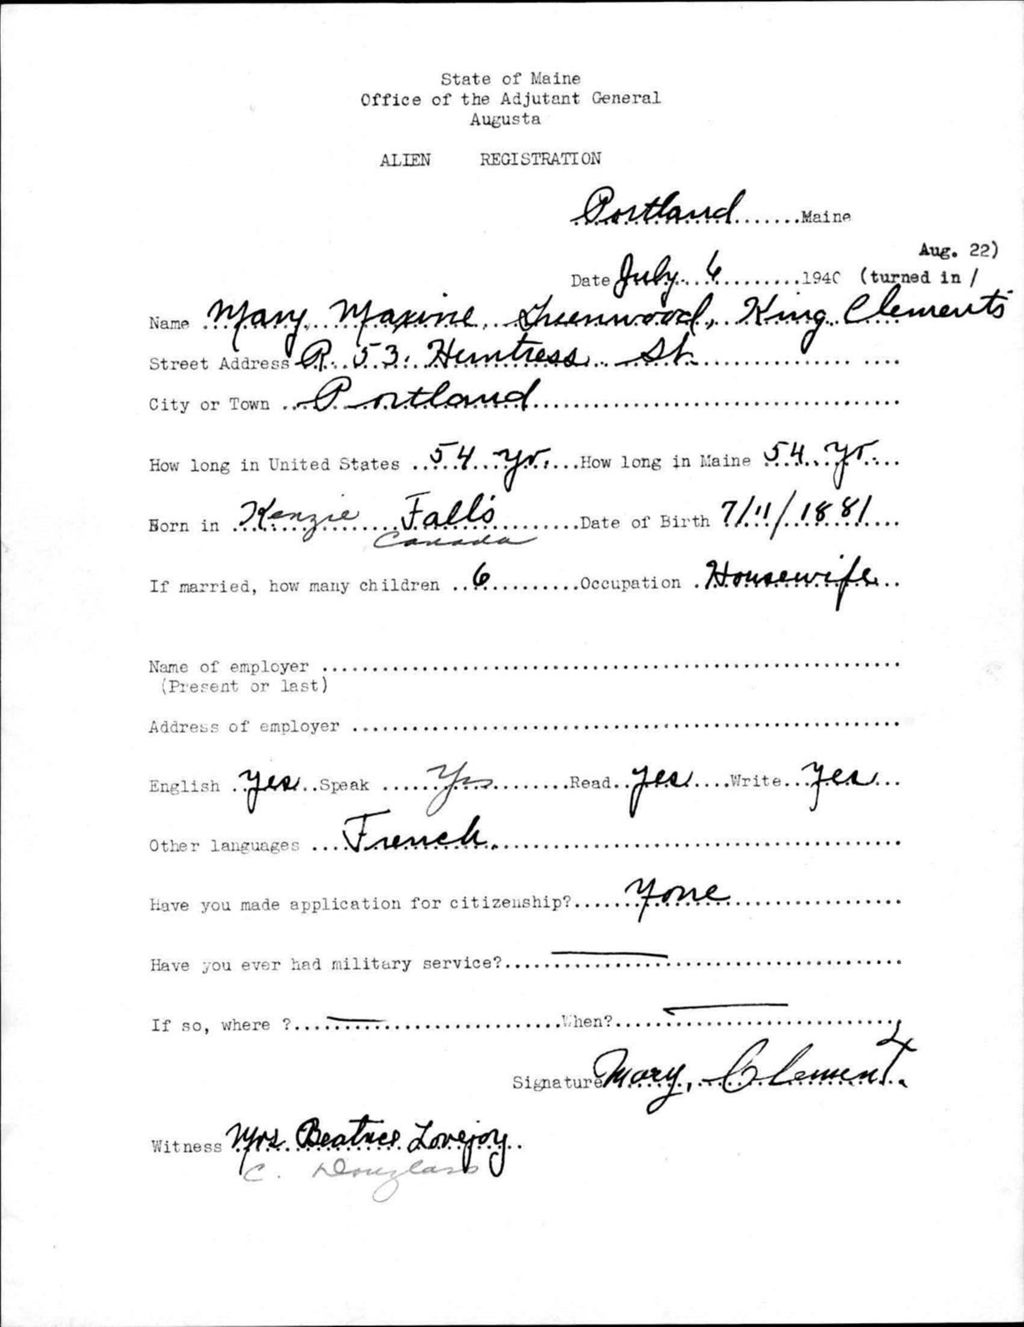 State of Maine
Office of the Adjutant General
Augusta
ALIEN REGISTRATION
Portland.......Maine
Aug. 22)
Date July 6..........1940 (turned in /
Name Mary Maxine Greenwood, King Clements
Street Address R. 53. Huntress St.
City or Town Portland
How long in United States 54 yr. How long in Maine 54 yr.
Born in Kenzie Falls Date of Birth 7/11/1881
Canada
If married, how many children 6 Occupation Housewife
Name of employer
(Present or last)
Address of employer
English yes Speak Yes Read yes Write yes
Other languages French.
Have you made application for citizenship? None
Have you ever had military service?
If so, where ? When?
Signature Mary, Clement.
Witness Mrs. Beatrice Lovejoy.
C. Douglass